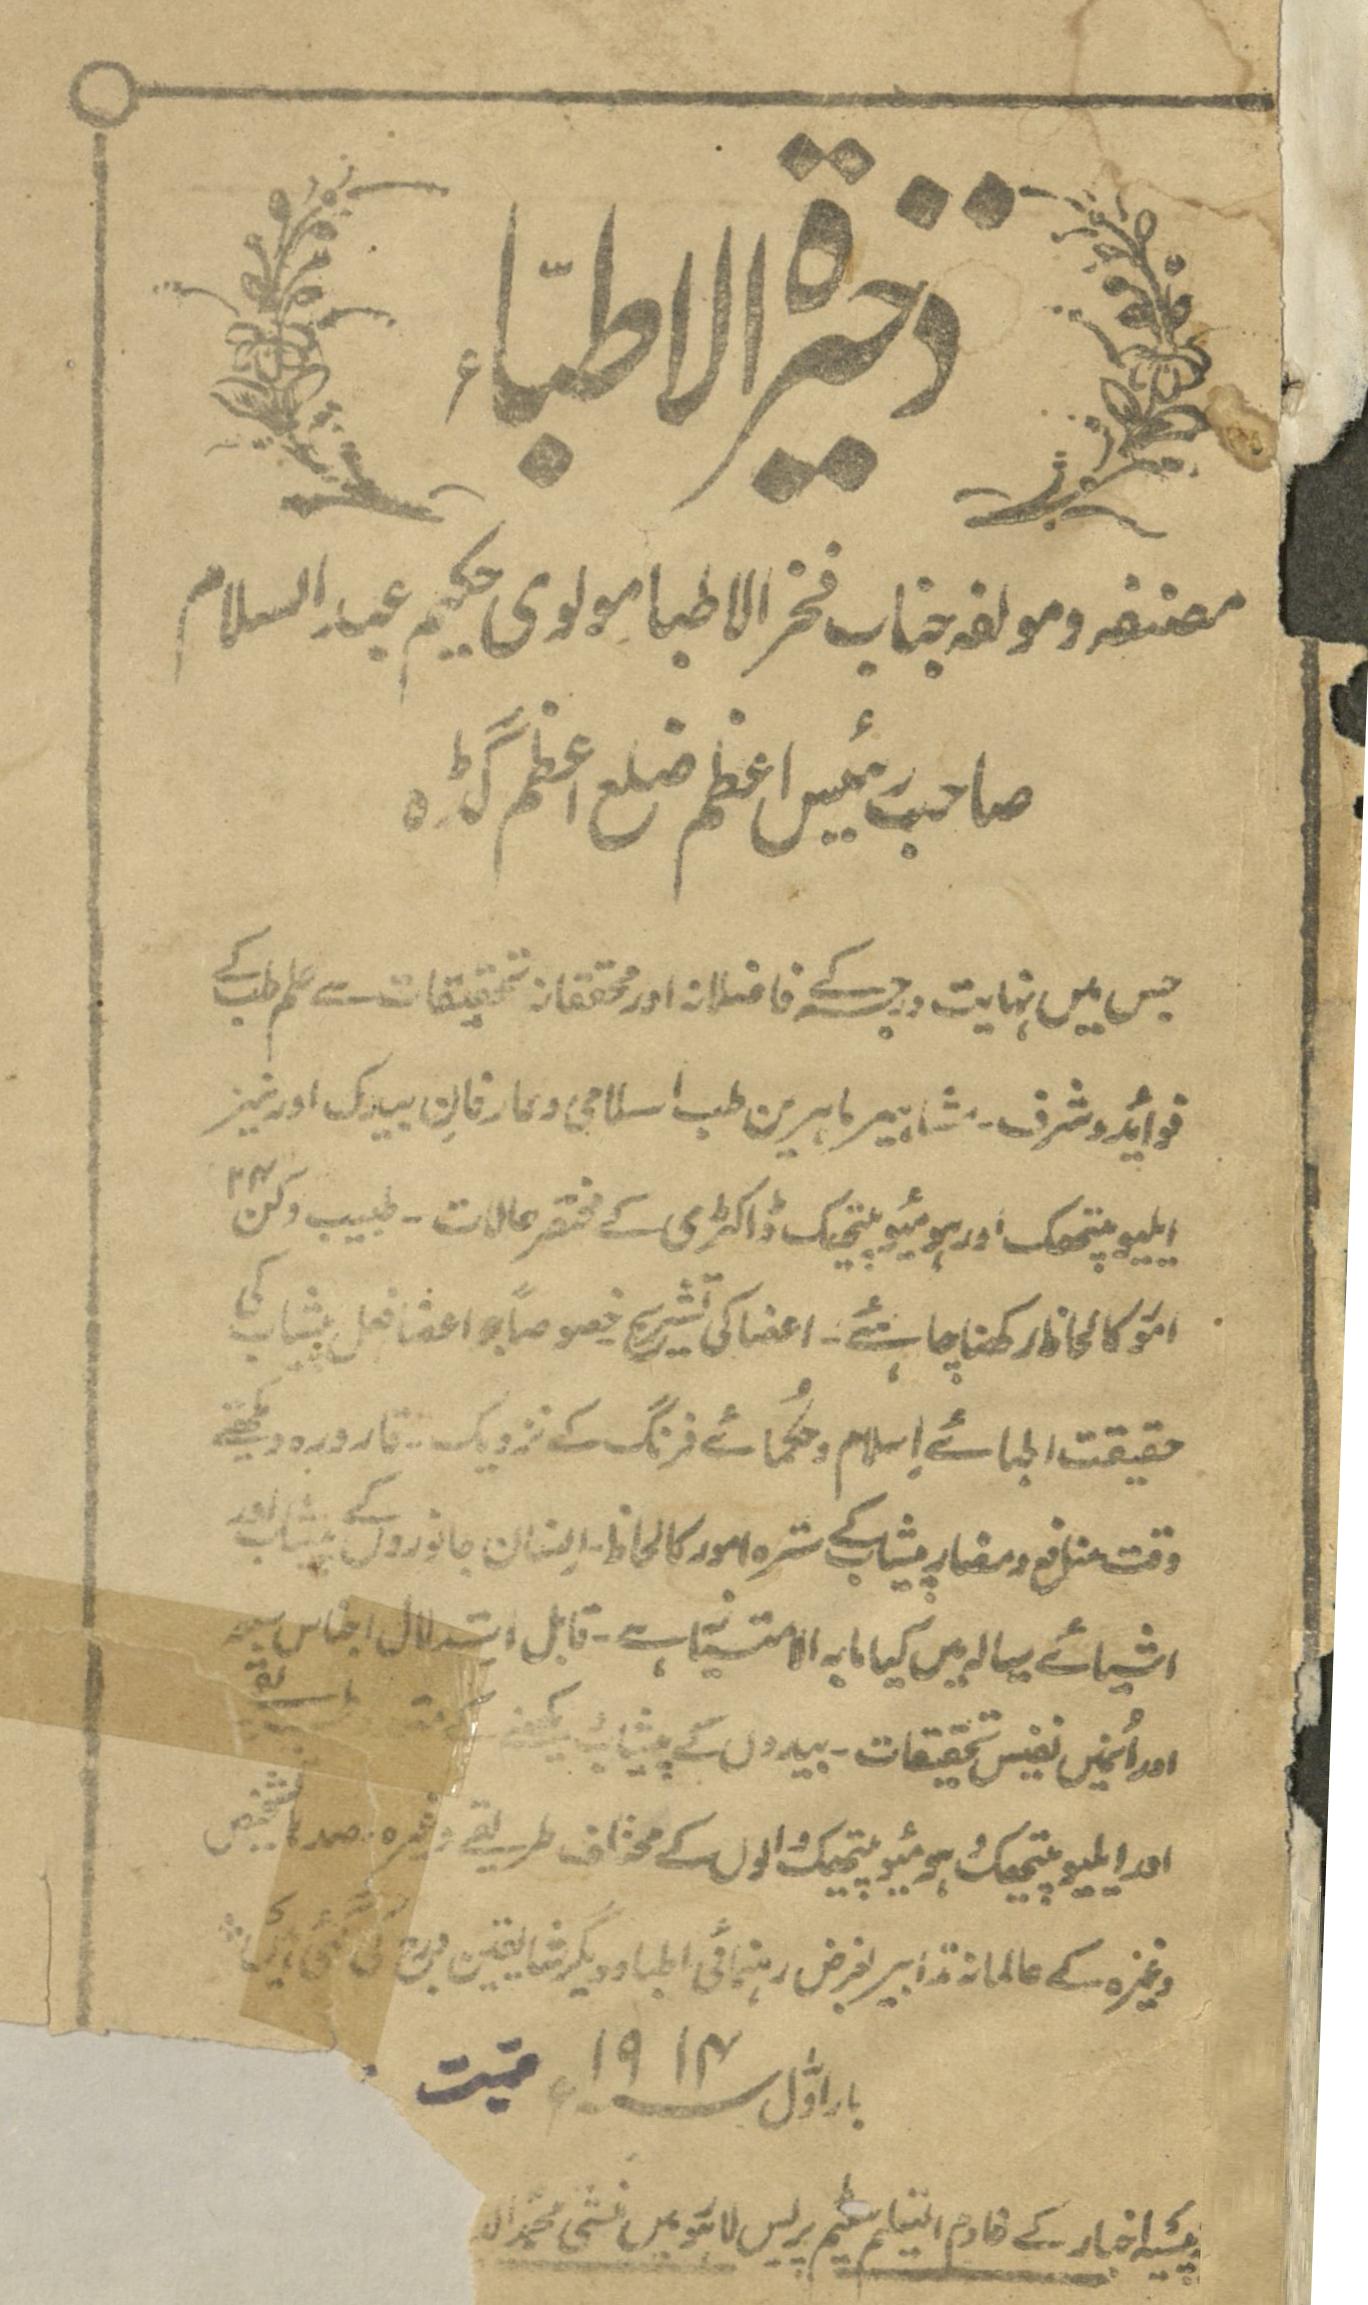 ذخیرۃ الاطبّاء
مصنفہ و مولفہ جناب فخر الاطبا مولوی حکیم عبد السلام
صاحب رئیس اعظم ضلع اعظم گڑہ
جس میں نہایت درجہ کے فاضلانہ اور محققانہ تحقیقات سے علم طب کے
فوائد و شرف ۔ مشاہیر ماہرین طب اسلامی و عارفان بیدک اور نیز
ایلیو پیتھک اور ہومیو پیتھیک ڈاکٹری کے مختصر حالات ۔ طبیب کو کن
امور کا لحاظ رکھنا چاہئے ۔ اعضا کی تشریح خصوصاً اعضا فعل پیشاب کی
حقیقت اطبائے اسلام و حکمائے فرنگ کے نزدیک ۔ قارورہ دیکھتے
وقت منافع و مضار پیشاب کے سترہ امور کا لحاظ ۔ انسان جانوروں کے پیشاب اور
اشیائے سیالہ میں کیا مابہ الامتیاز ہے ۔ قابل استدلال اجناس سبعہ
اور اُنمیں نفیس تحقیقات ۔ بیدوں کے پیشاب دیکھنے کے طریقے
اور ایلیو پیتھک ہومیو پیتھیک والوں کے مختلف طریقے وغیرہ ۔ صدہا تشخیص
وغیرہ کے عالمانہ تدابیر بغرض رہنمائی اطبا و دیگر شایقین درج کی گئی ہیں
بار اوّل ۱۹۱۴ء قیمت
پیسہ اخبار کے خادم التعلیم سٹیم پریس لاہور میں منشی محمد